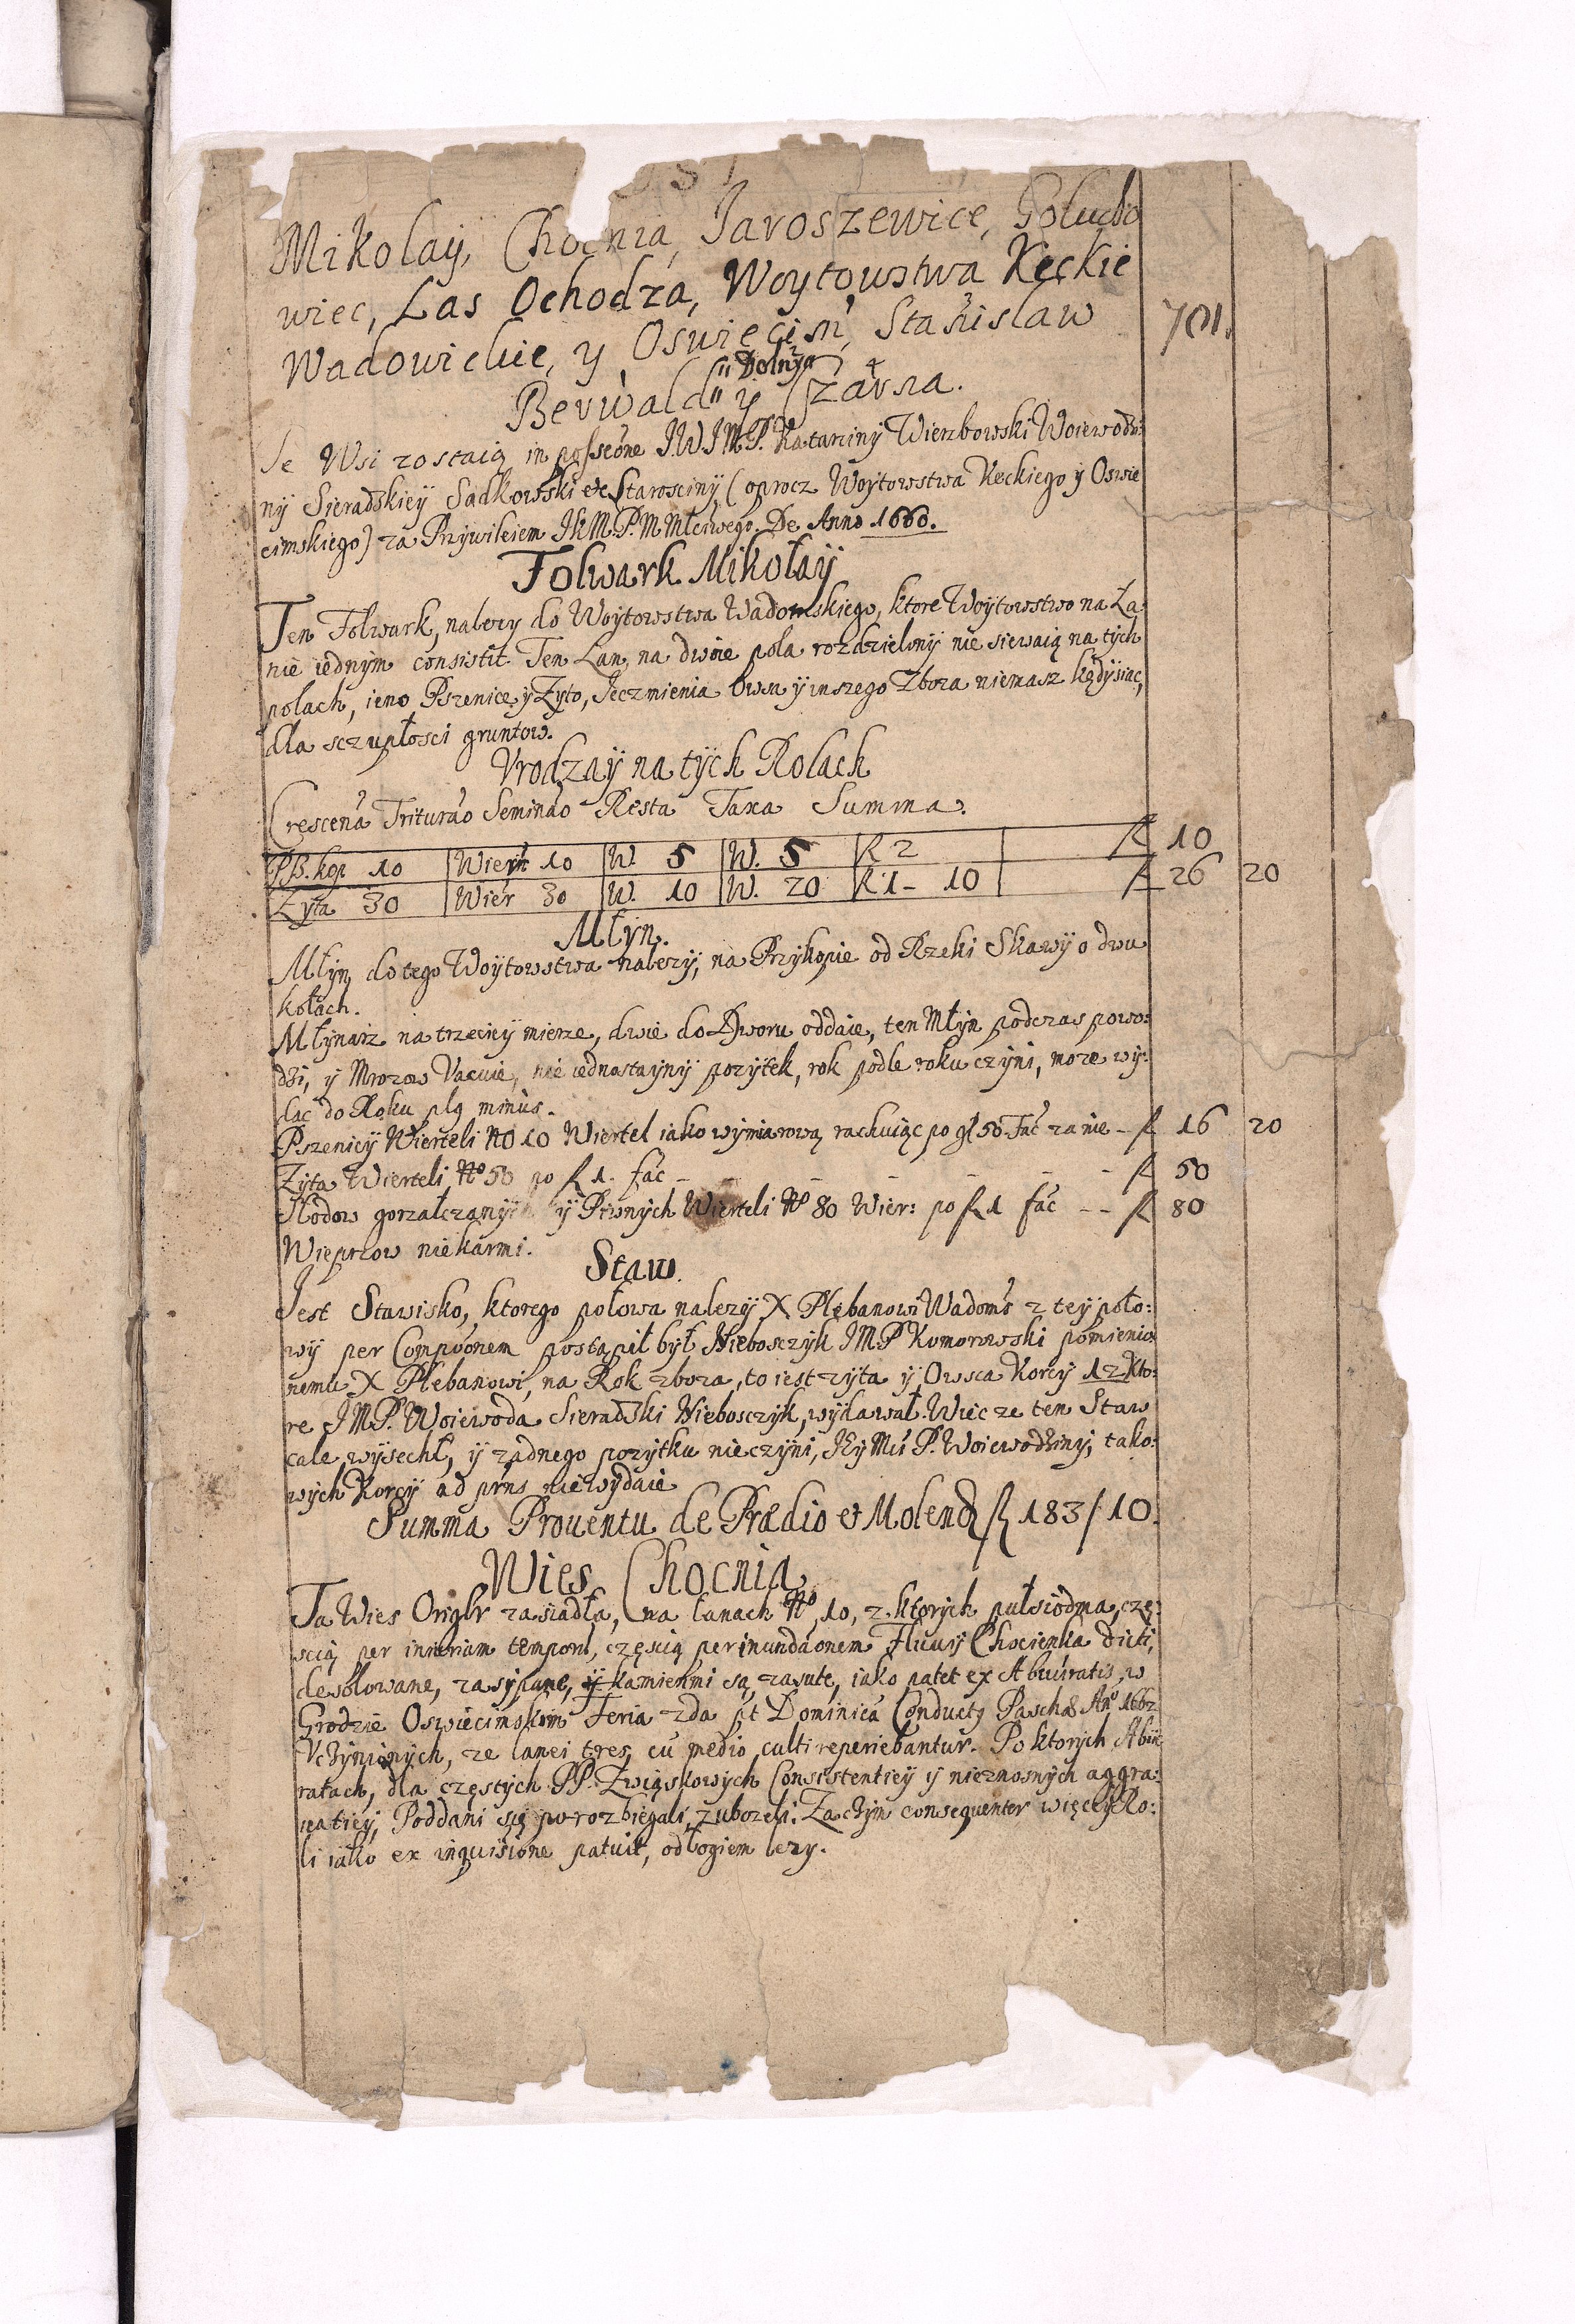 Mikolaÿ, Chocnia, Jaroszewice, Gołucho
wiec, Las Ochodza, Woytowstwa Kęckie 701.
Wadowickie, y Oswięcim, Stanislaw
" Dolny
Berwald " y Czarna.
Te Wsi zostaią in possẽone J.W.J.M.P. Katarziny Wierzbowski Woiewodzi:
ny Sieradzkieÿ Sadkowski etc Starosciny (oprocz Woytowstwa Keckiego y Oswie
cimskiego) za Przywileiem JKM.P.M Młciwego. De Anno 1660.
Folwark Mikołaÿ
Ten Folwark, nalezy do Woÿtowstwa Wadowskiego, ktore Woÿtowstwo na Ła:
nie iednÿm consistit. Ten Łan, na dwoie pola rozdzielonÿ nie siewaią na tÿch
polach, ieno Pszenice ÿ Zÿto, Jeczmienia Owsa ÿ inszego Zboza niemasz kędÿsiac,
dla sczupłosci gruntow.
Vrodzaÿ na tÿch Rolach
Crescẽna Triturão Seminão Resta Taxa Summa.
PB. kop 10 Wiert 10 W. 5 W. 5 fl 2 fl 10
Zyta 30 Wier 30 W. 10 W. 20 fl 1 - 10 fl 26 20
Młyn.
Młÿn do tego Woÿtowstwa nalezÿ, na Przÿkopie od Rzeki Skawÿ o dwu
kołach.
Młÿnarz na trzecieÿ mierze, dwie do Dworu oddaie, ten Młÿn podczas powo:
dzi, ÿ Mrozow Vacuie, nie iednostaÿnÿ pozÿtek, rok podle roku czÿni, moze wÿ:
do Roku plq minus.
Pszenicÿ Wierteli No 10 Wiertel iako wÿmiarową rachuiąc po gl 50 Fać za nie - fl 16 20
Zÿta Wierteli No 50 po fl 1. fać - - - - fl 50
Słodow gorzałczanÿch ÿ Piwnÿch Wierteli No 80 Wier: po fl 1 fać - - fl 80
Wieprzow nie karmi.
Staw.
Jest Stawisko, ktorego połowa nalezÿ X Plebanowi Wadows z teÿ poło:
wÿ per Compõonem postąpił był Niebosczyk JMP Komorowski pomienio:
nemu X Plebanowi, na Rok zboza, to iest zÿta ÿ Owsca Korcÿ 12 kto:
re JMP. Woiewoda Sieradzki Niebosczyk, wÿdawał. Wiec ze ten Staw
cale wÿsechł, ÿ zadnego pozÿtku nie czÿni, P. Woiewodzinÿ, tako:
wÿch Korcÿ ad prns nie wÿdaie
Summa Prouentu de Prædio et Molend fl 183/10.
Wies Chocnia
Ta Wies Origlr zasiadła, na łanach No 10, z ktorÿch pułsiodma, czę:
scią per iniuriam tempori, częscią per inundãonem Fluuij Chocienka dicti,
desolowane, zasÿpane, ÿ kamieńmi są zasute, iako patet ex Abiuratis, w
Grodzie Oswiecimskim Feria 2da pt Dominica Conducta Paschæ Ano 1662
Vczÿnionÿch, ze lanei tres, cũ medio culti reperiebantur. Po ktorych Abiu
ratach, dla częstÿch PP. Związkowÿch Consistentieÿ ÿ nieznosnÿch aggra:
uatieÿ, Poddani się porozbiegali, zubozeli. Zaczÿm consequenter więceÿ Ro:
li iako ex inquisitione patuit, odłogiem lezy.